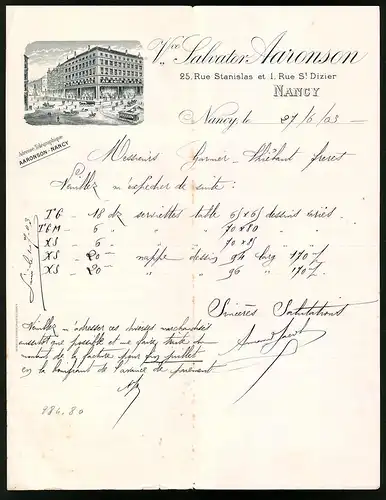 Vve Salvator Aaronson
25, Rue Stanislas et 1, Rue St Dizier
NANCY
Adresse Télégraphique
AARONSON-NANCY
Nancy, le 27/6/03
Messieurs Garnier-Thiébaut frères
Veuillez m'expédier de suite:
TG - 18 dz serviettes table 65 x 65 dessins variés.
TGM - 6 " " 70 x 80
XS - 6 " " 70 x 85
XS - 20m nappe dessin 94 larg 170
XS - 20m " " 96 " 170
Sincères Salutations
Veuillez m'adresser ces diverses marchandises
aussitôt que possible et me faire traite du
montant de la facture pour fin juillet
en la bonifiant de l'avance de paiement
984.80